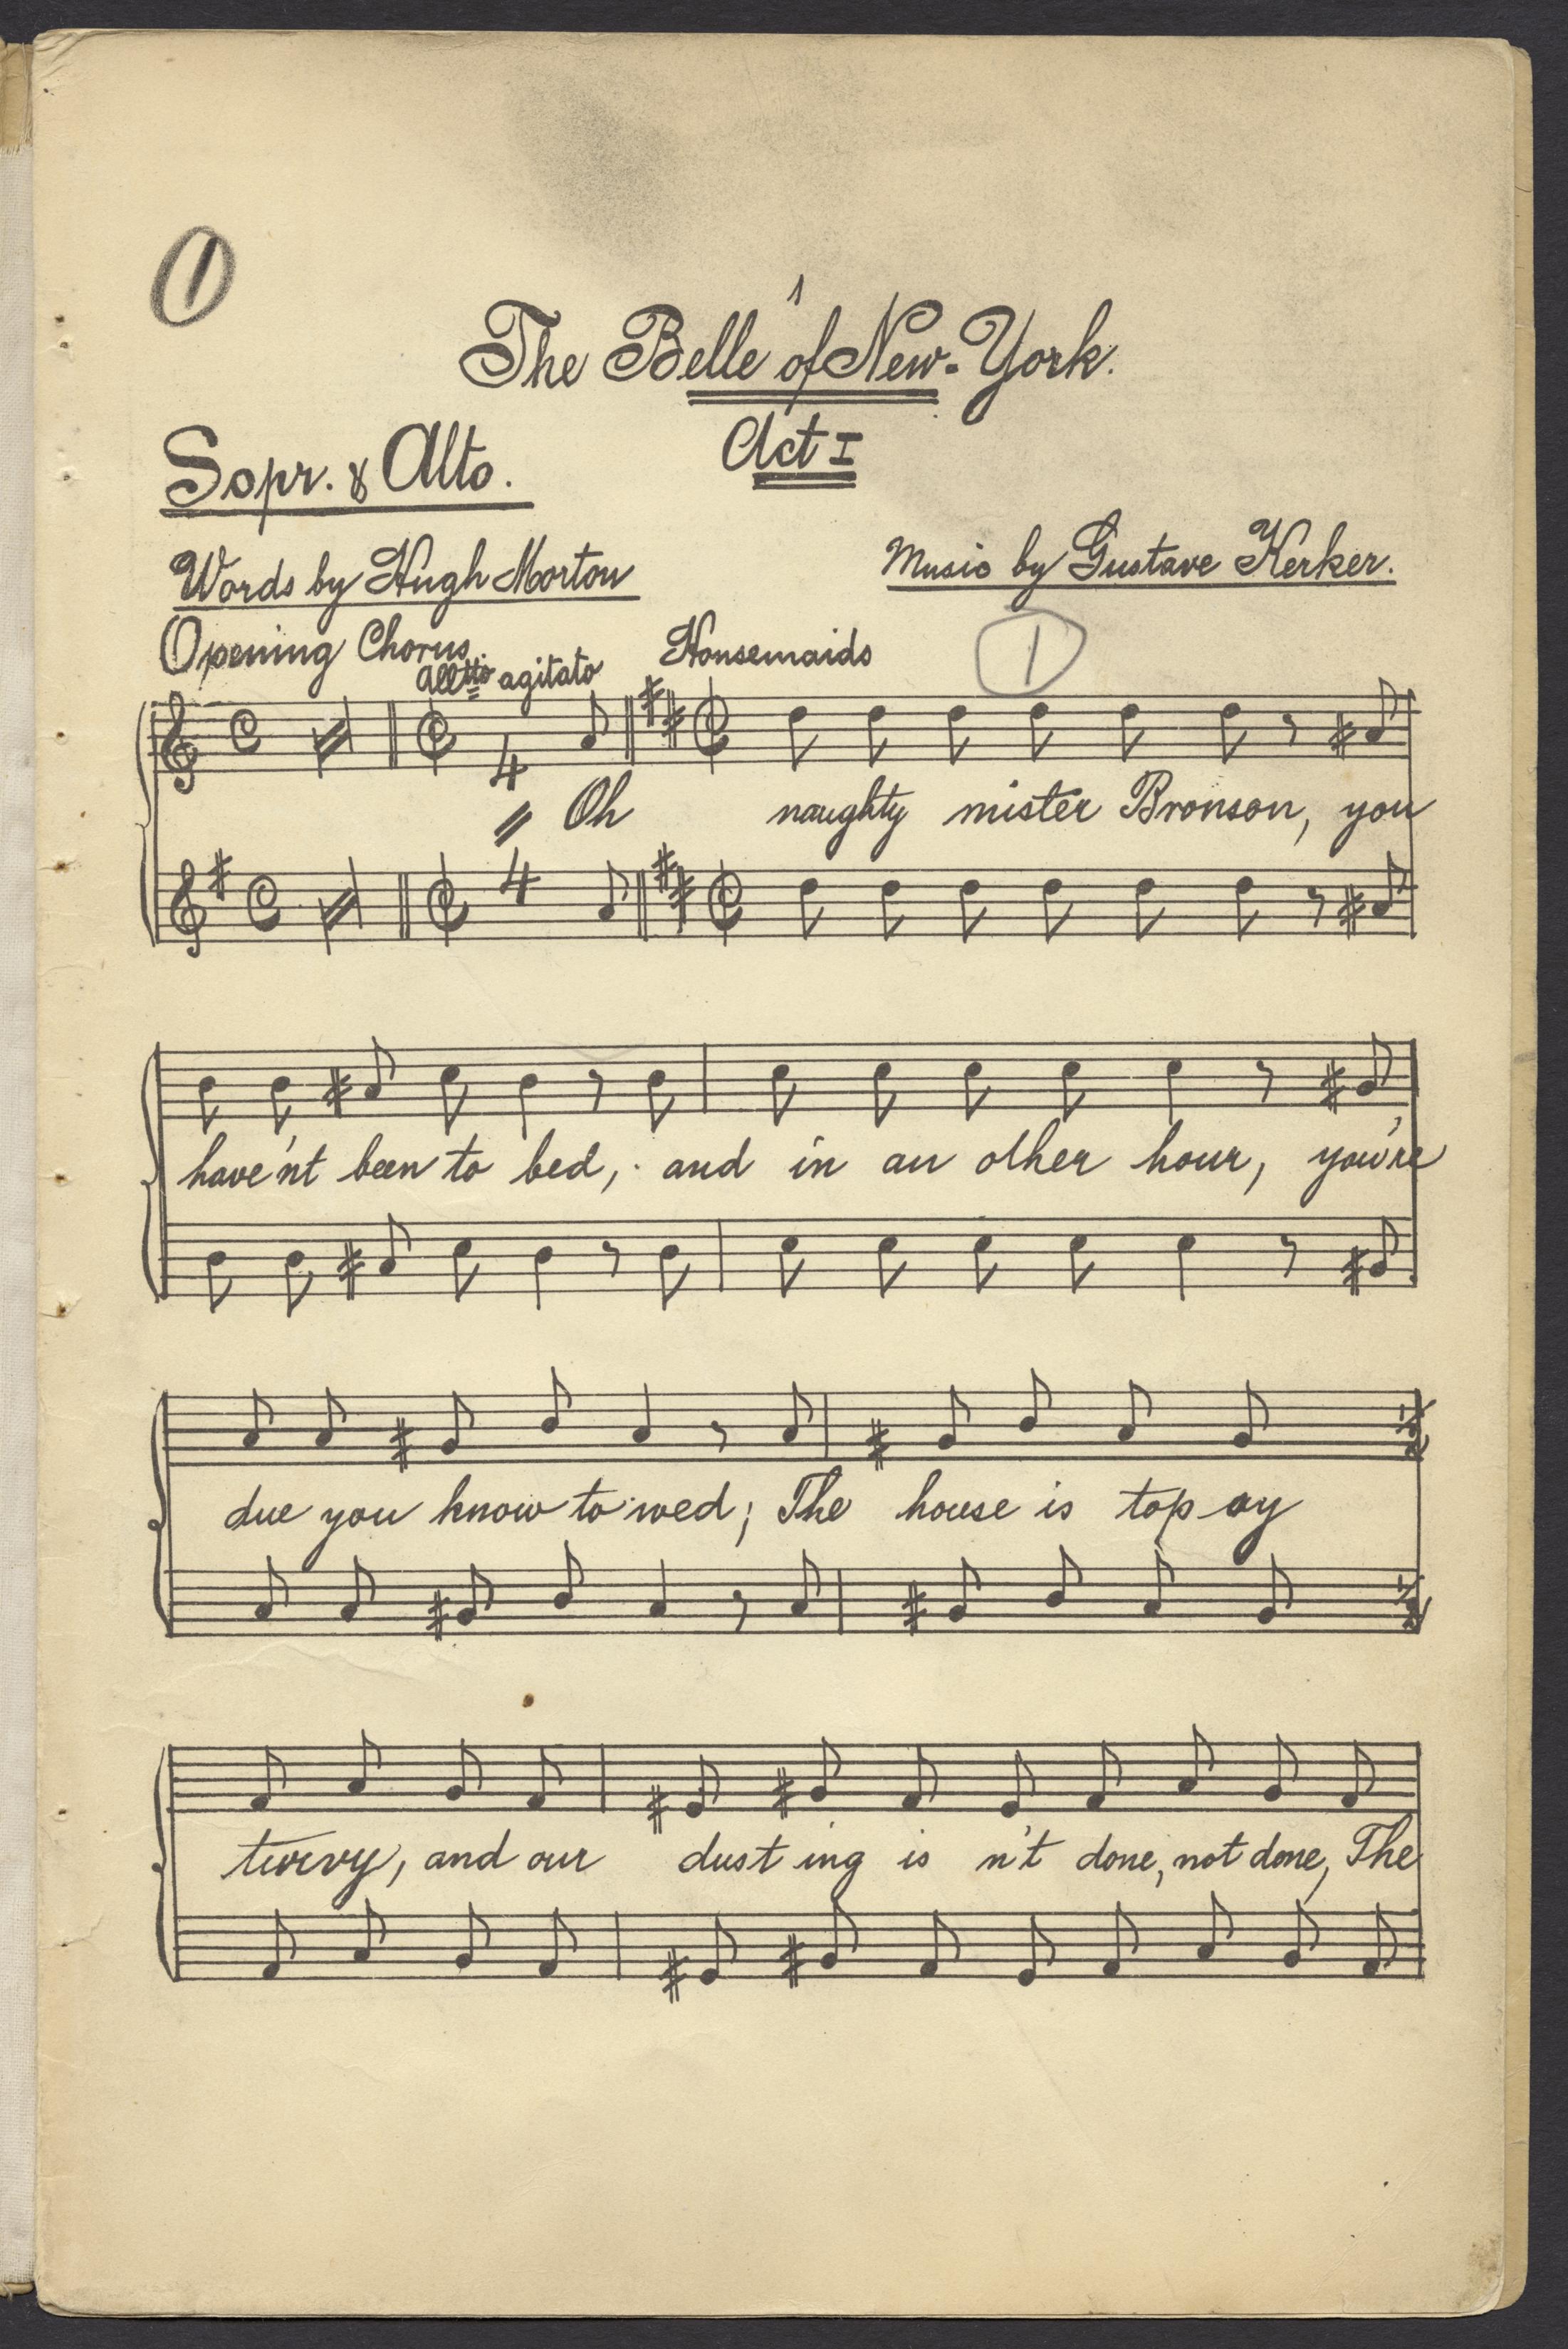 1
1
The Belle of New-York.
Act I
Sopr. & Alto.
Words by Hugh Morton
Music by Gustave Kerker.
Opening Chorus.
Alltto agitato
Housemaids
1
4
Oh naughty mister Bronson, you
4
have'nt been to bed, and in an other hour, you're
due you know to wed; The house is top sy
turvy, and our dust ing is n't done, not done, The